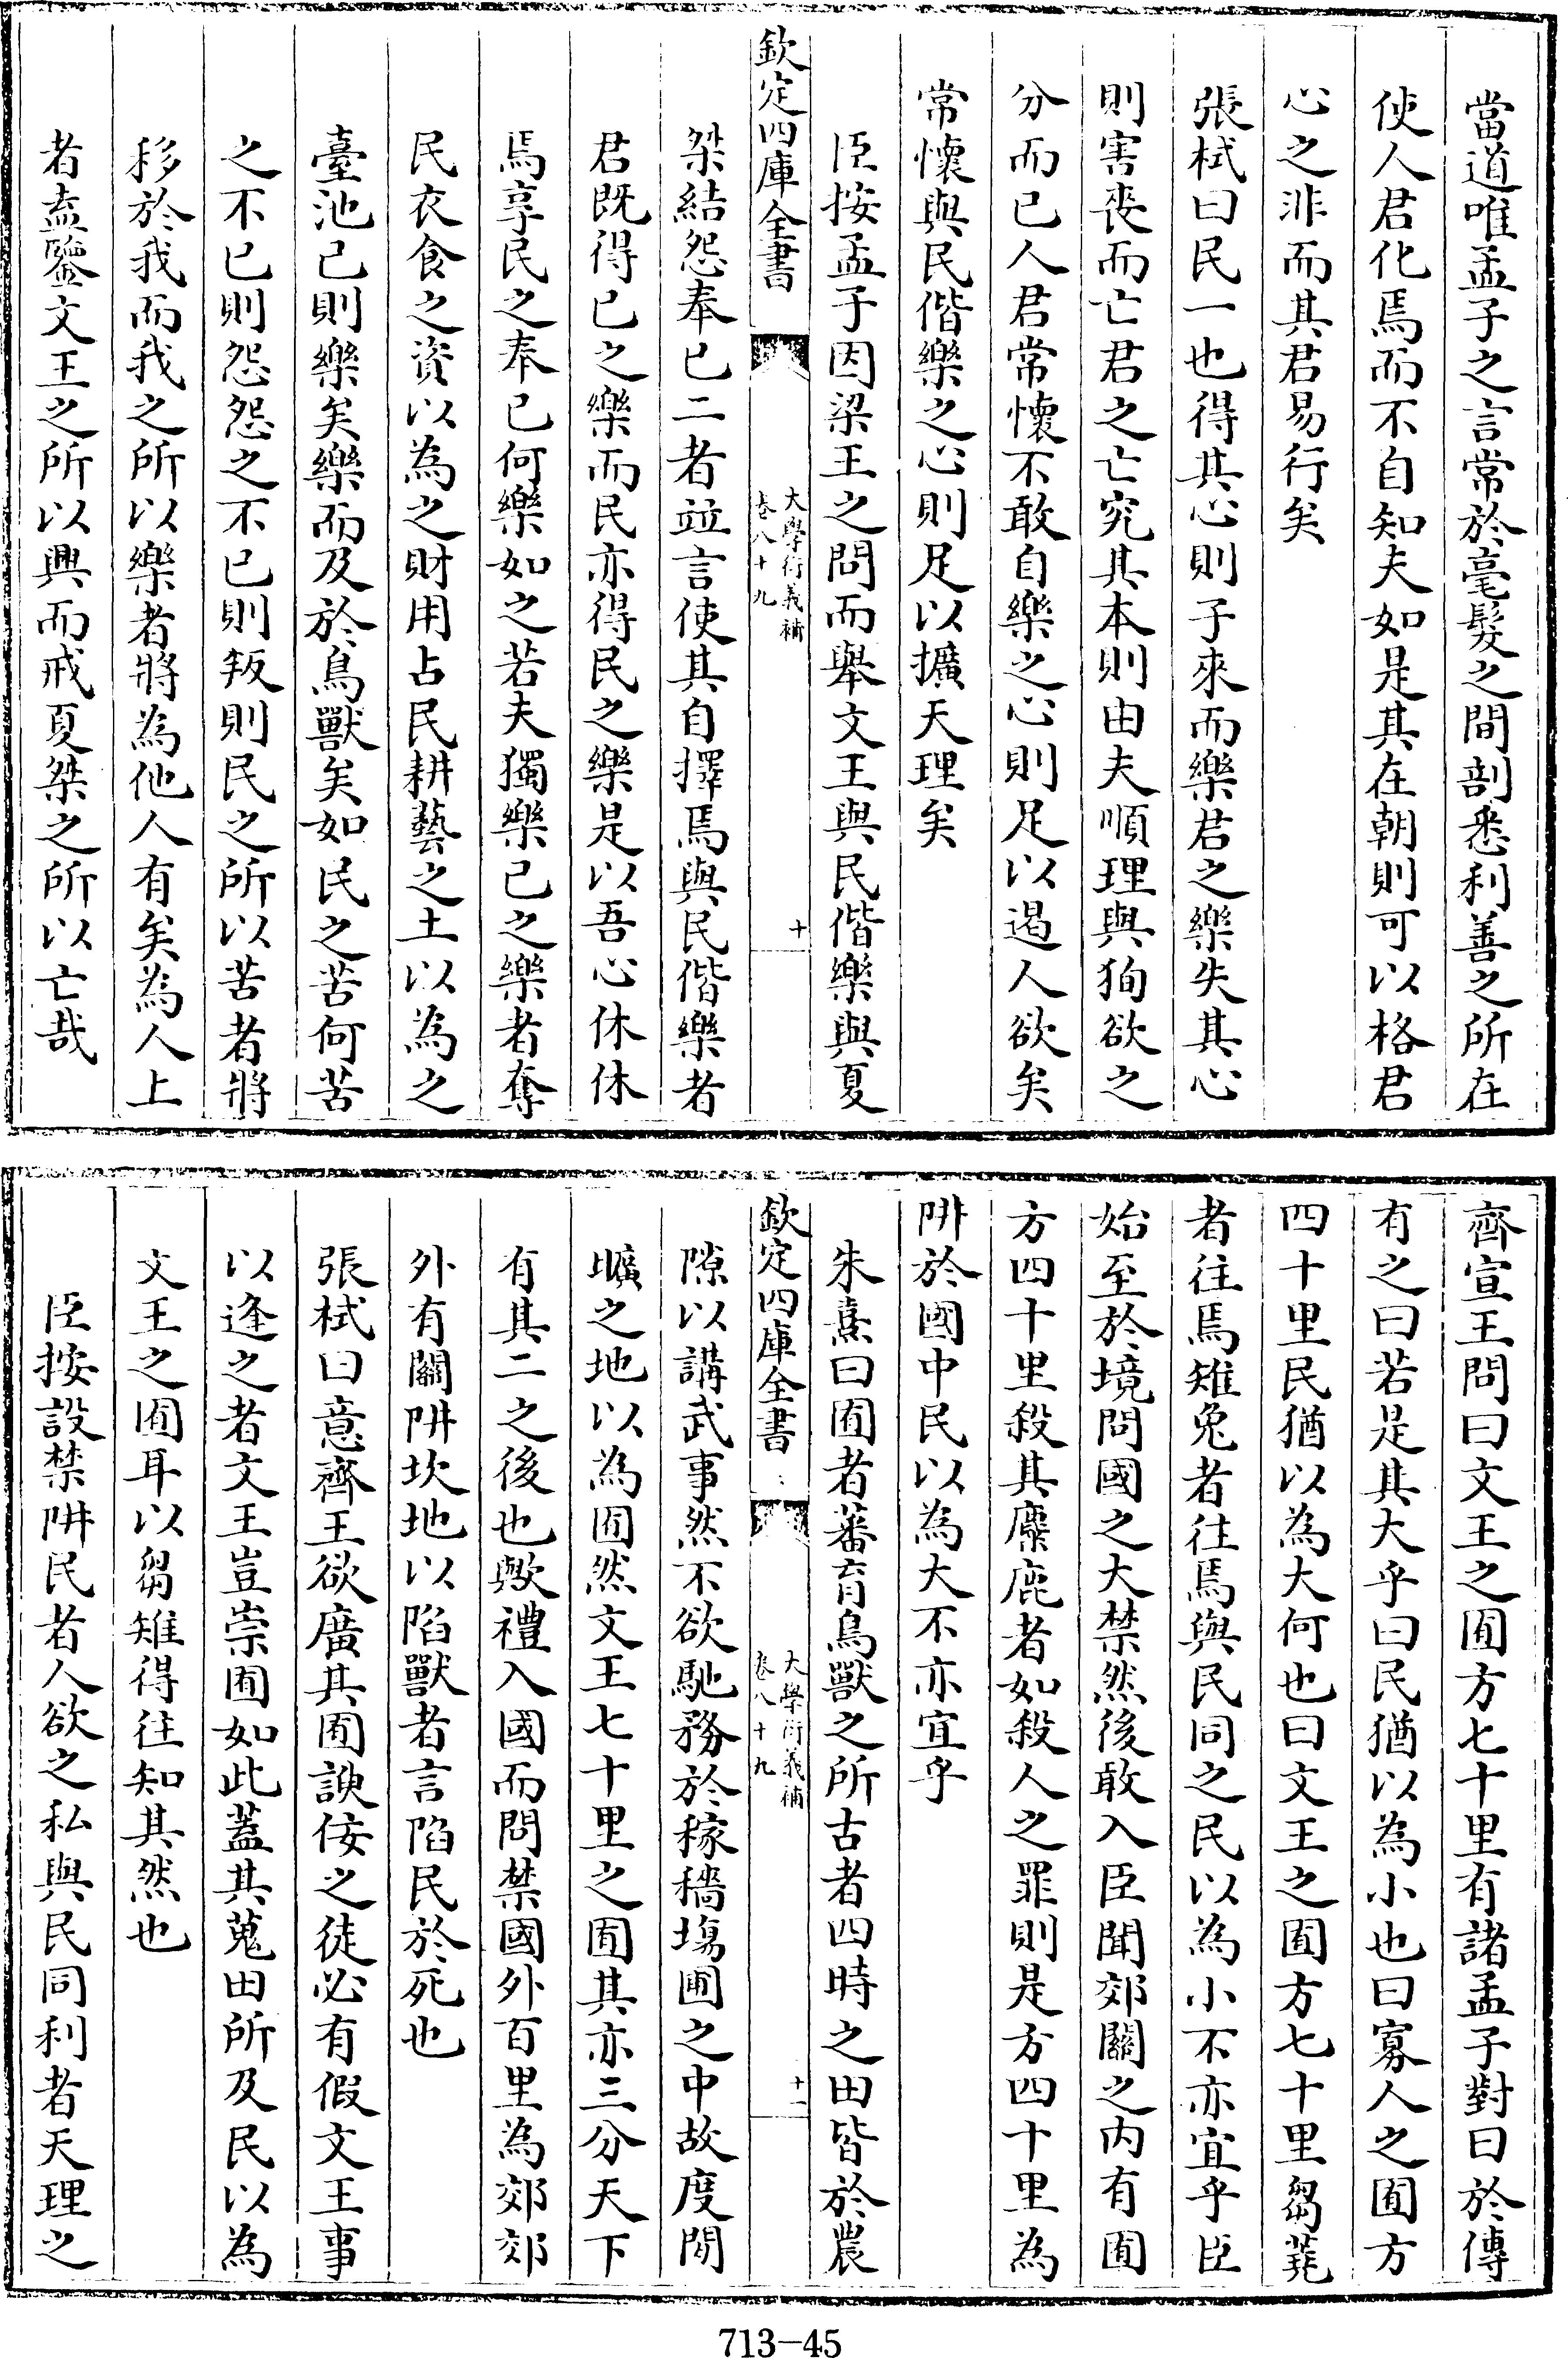 當道唯孟子之言常於毫髮之間剖悉利善之所在
使人君化焉而不自知夫如是其在朝則可以格君
心之非而其君易行矣
張栻曰民一也得其心則子來而樂君之樂失其心
則害喪而亡君之亡究其本則由夫順理與狥欲之
分而已人君常懷不敢自樂之心則足以遏人欲矣
常懷與民偕樂之心則足以擴天理矣
臣按孟子因梁王之問而舉文王與民偕樂與夏
欽定四庫全書
大學衍義補
卷八十九
十
桀結怨奉已二者並言使其自擇焉與民偕樂者
君既得已之樂而民亦得民之樂是以吾心休休
焉享民之奉已何樂如之若夫獨樂已之樂者奪
民衣食之資以為之財用占民耕藝之土以為之
臺池已則樂矣樂而及於鳥獸矣如民之苦何苦
之不已則怨怨之不已則叛則民之所以苦者將
移於我而我之所以樂者將為他人有矣為人上
者盍鑒文王之所以興而戒夏桀之所以亡哉
齊宣王問曰文王之囿方七十里有諸孟子對曰於傳
有之曰若是其大乎曰民猶以為小也曰寡人之囿方
四十里民猶以為大何也曰文王之囿方七十里芻蕘
者往焉雉兔者往焉與民同之民以為小不亦宜乎臣
始至於境問國之大禁然後敢入臣聞郊關之内有囿
方四十里殺其麋鹿者如殺人之罪則是方四十里為
阱於國中民以為大不亦宜乎
朱熹曰囿者蕃育鳥獸之所古者四時之田皆於農
欽定四庫全書
大學衍義補
卷八十九
十一
隙以講武事然不欲馳務於稼穡塲圃之中故度閒
曠之地以為囿然文王七十里之囿其亦三分天下
有其二之後也歟禮入國而問禁國外百里為郊郊
外有關阱坎地以陷獸者言陷民於死也
張栻曰意齊王欲廣其囿諛佞之徒必有假文王事
以逢之者文王豈崇囿如此蓋其蒐田所及民以為
文王之囿耳以芻雉得往知其然也
臣按設禁阱民者人欲之私與民同利者天理之
713-45